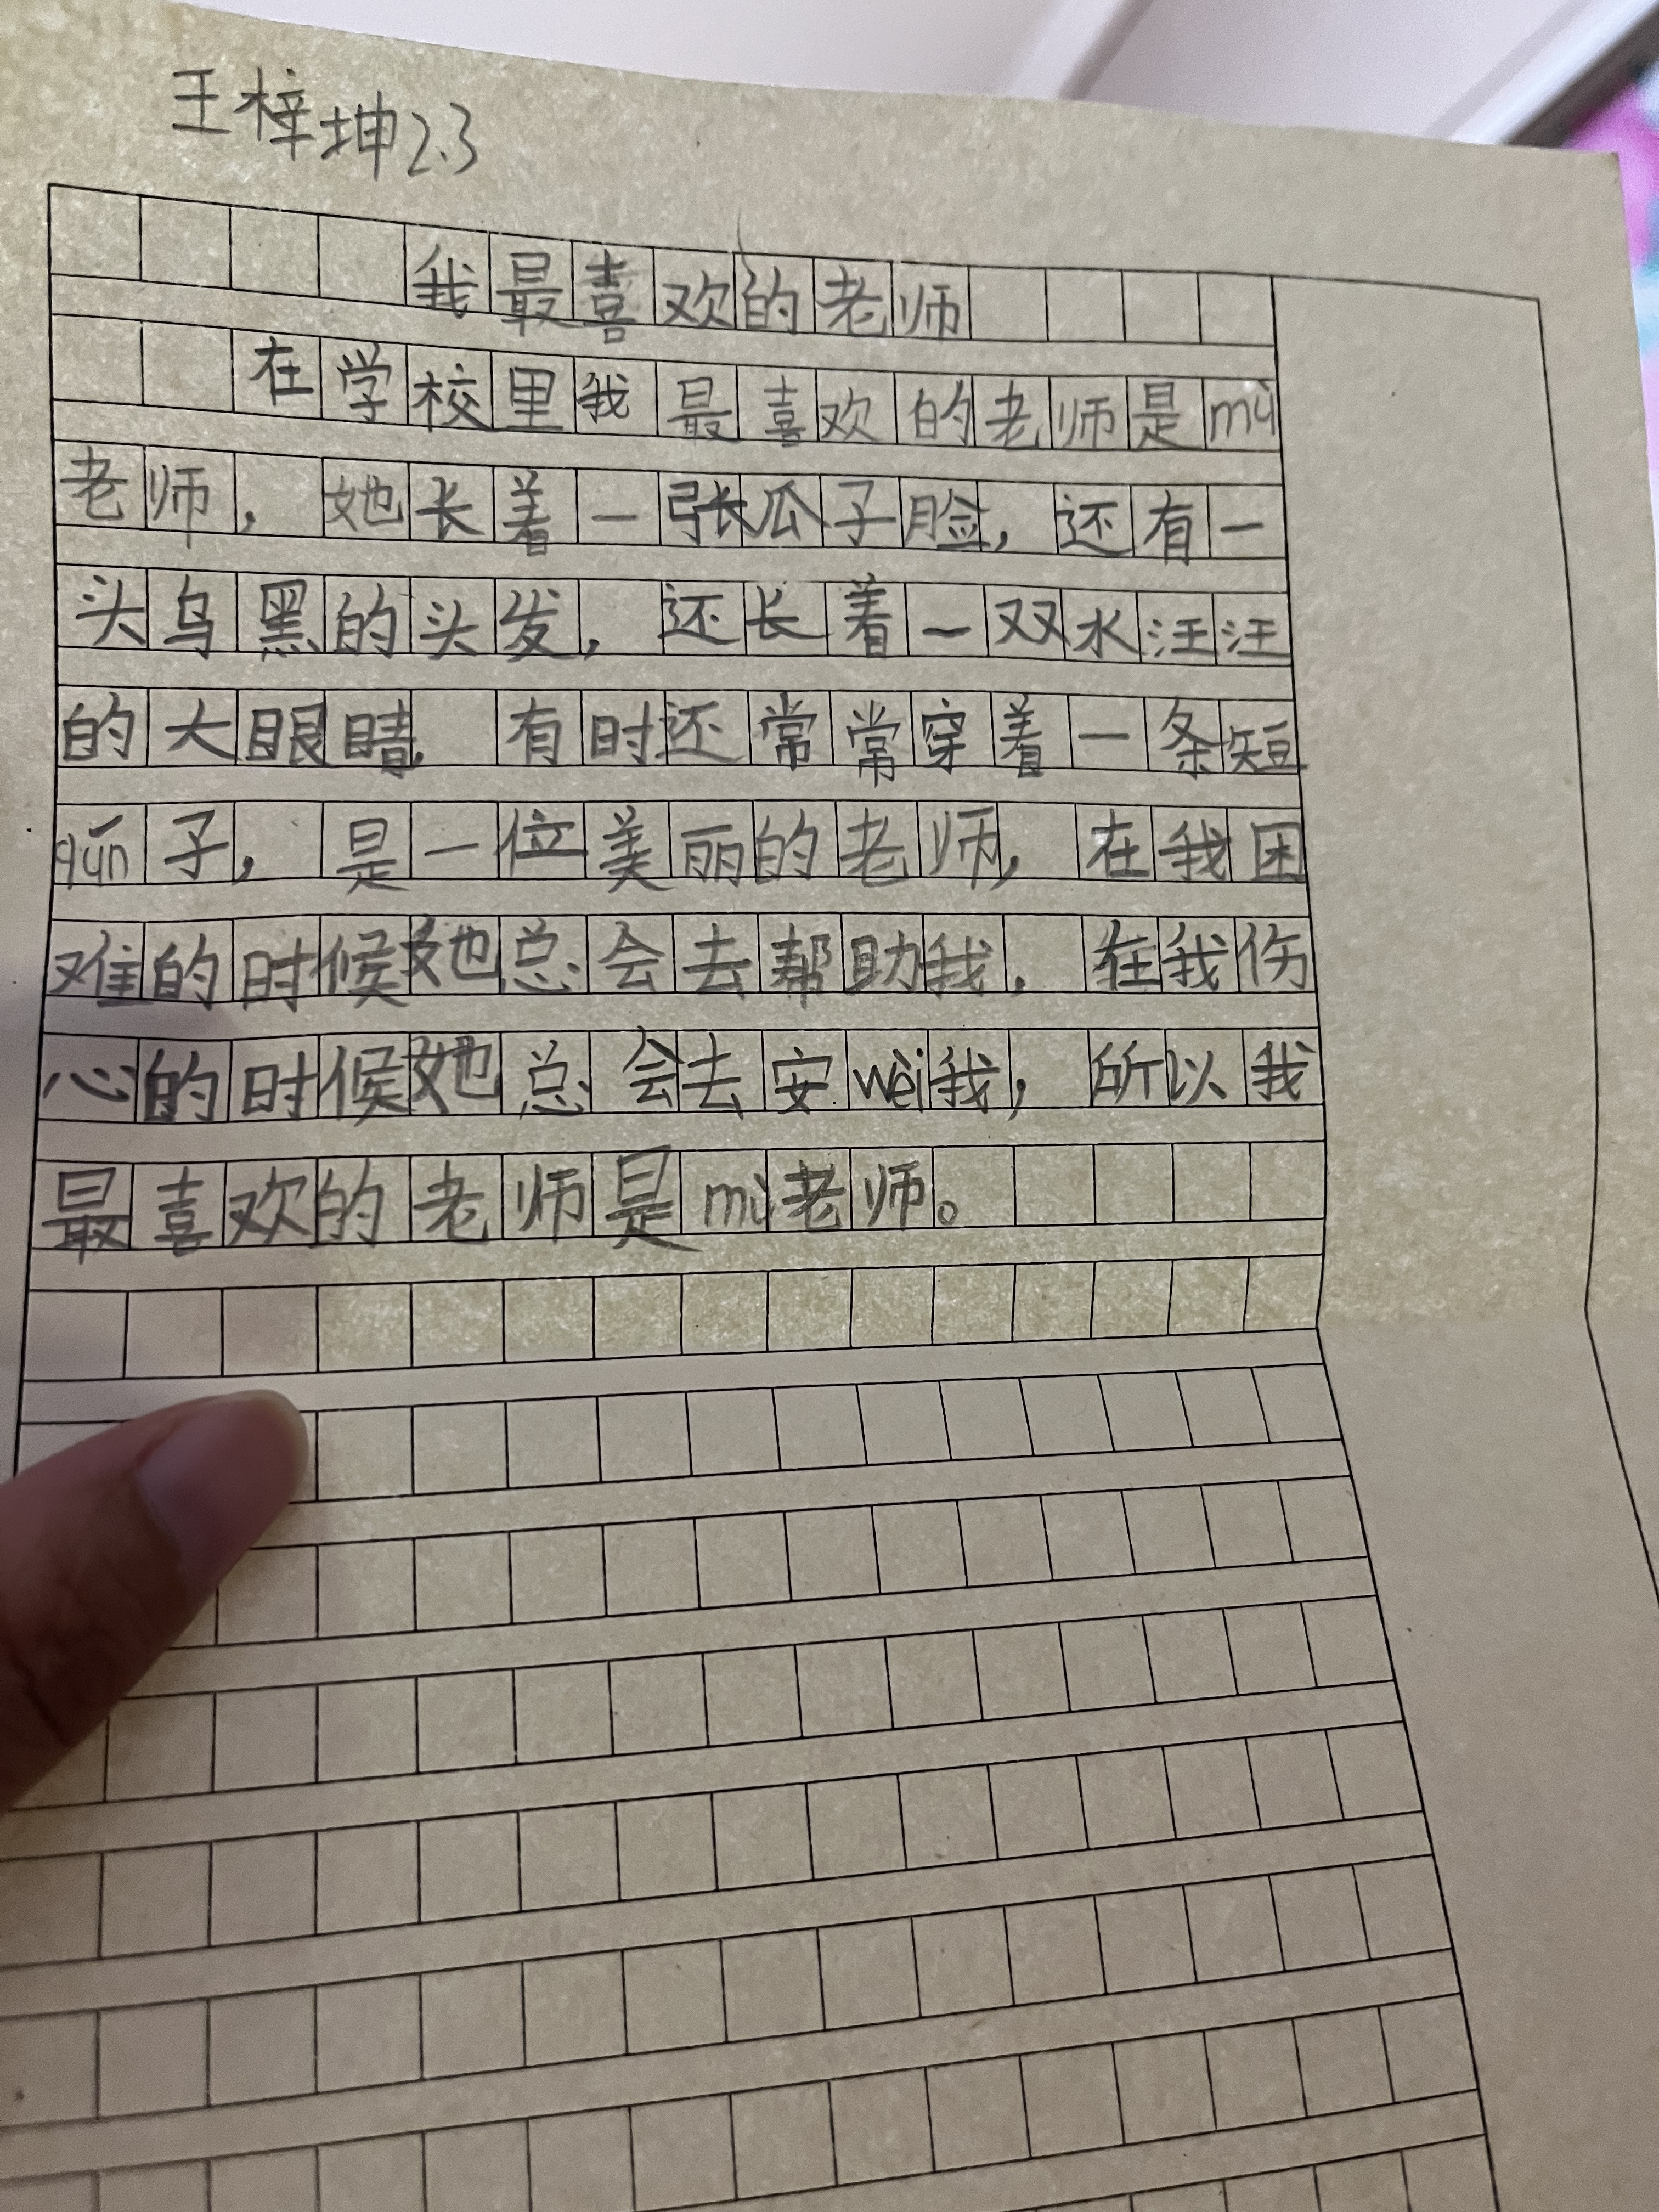 王梓坤2.3
我最喜欢的老师
在学校里我最喜欢的老师是mù
老师，她长着一张瓜子脸，还有一
头乌黑的头发，还长着一双水汪汪
的大眼睛，有时还常常穿着一条短
qún子，是一位美丽的老师，在我困
难的时候她总会去帮助我，在我伤
心的时候她总会去安wèi我，所以我
最喜欢的老师是mù老师。